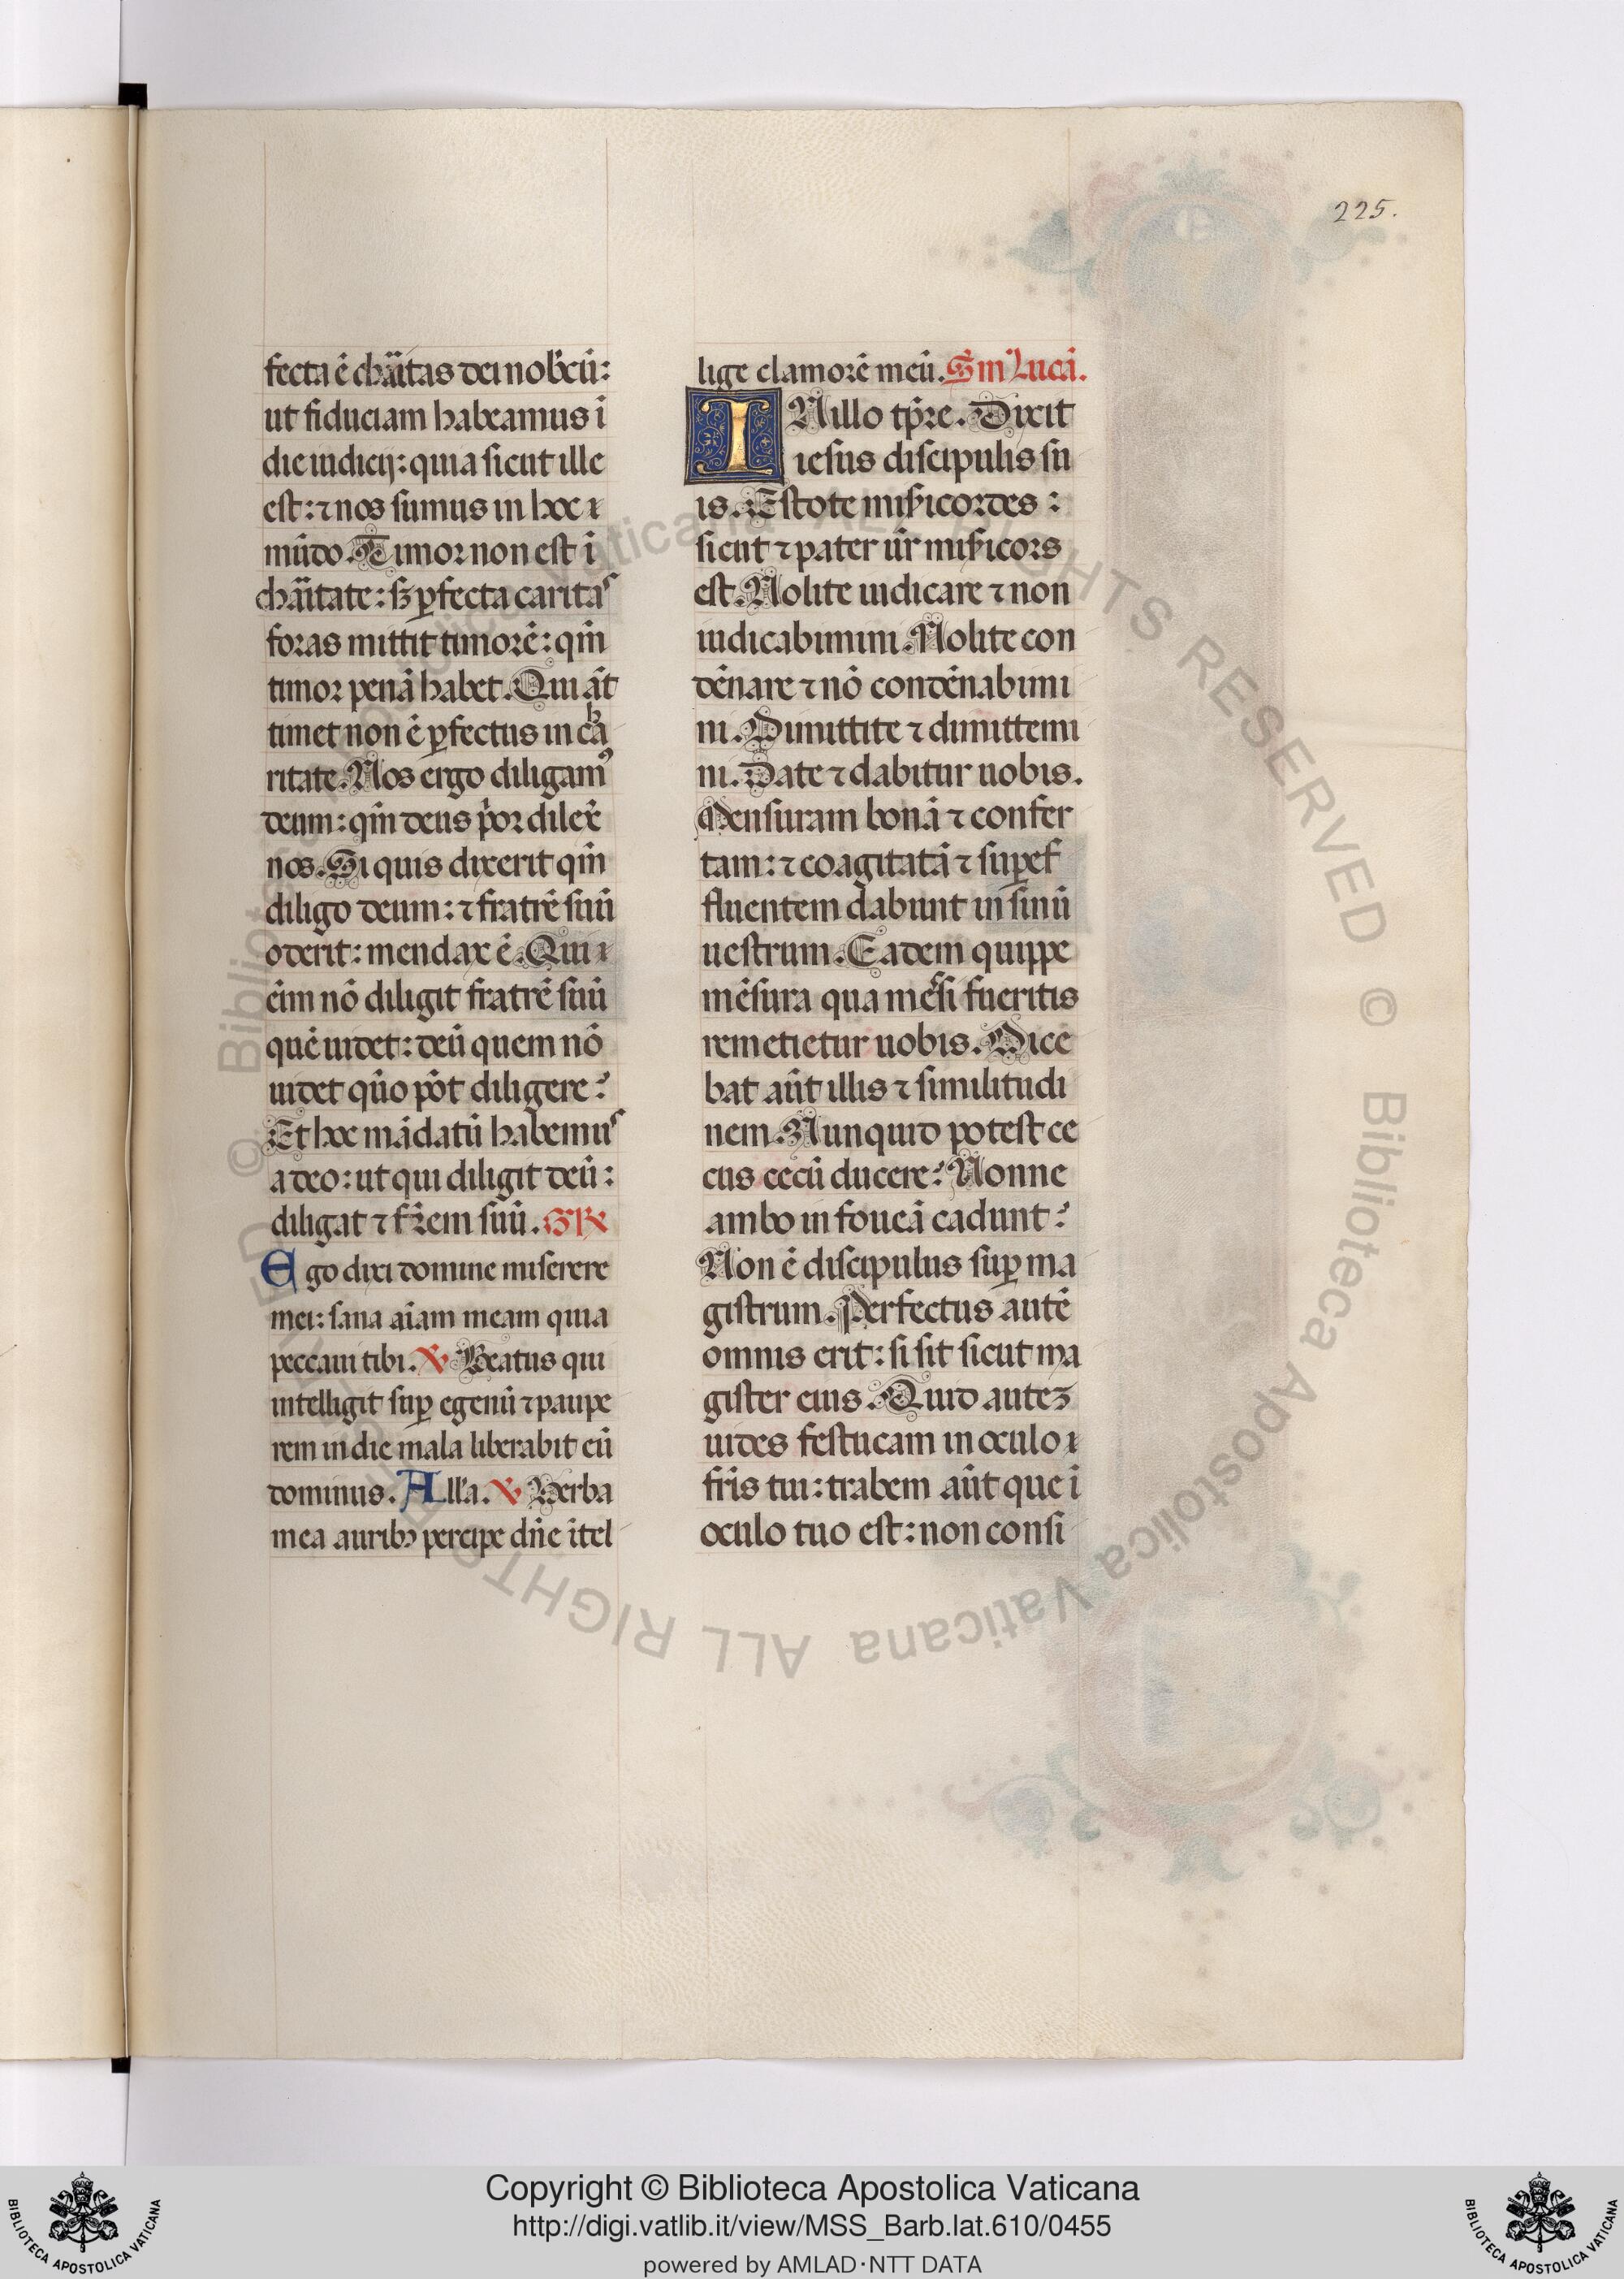 225.
fecta ē chāītas dei nobcū:
ut fiduciam habeamus ī
die iudicij: quia sicut ille
est: ⁊ nos sumus in hoc
mūdo. Timor non est ī
chāītate: sꝫ ꝑfecta caritas
foras mittit timorē: qm̄
timor penā habet. Qui āt
timet non ē ꝑfectus in cha
ritate. Nos ergo diligamꝰ
deum: qm̄ deus p̄or dilex̄
nos. Si quis dixerit qm̄
diligo deum: ⁊ fratrē suū
oderit: mendax ē. Qui
eīm nō diligit fratrē suū
quē uidet: deū quem nō
uidet qūo pōt diligere?
Et hoc mādatū habemus
a deo: ut qui diligit deū:
diligat ⁊ fr̄em suū. GR
Ego dixi domine miserere
mei: sana aīam meam quia
peccaui tibi. ℣ Beatus qui
intelligit suꝑ egenū ⁊ paupe
rem in die mala liberabit eū
dominus. All'a. ℣ Verba
mea auribꝫ percipe dn̄e ītel
lige clamorē meū. Sm̄ Lucā.
IN illo tp̄re. Dixit
iesus discipulis su
is. Estote misicordes:
sicut ⁊ pater ur̄ misicors
est. Nolite iudicare ⁊ non
iudicabimini. Nolite con
dēnare ⁊ nō condēnabimi
ni. Dimittite ⁊ dimittemi
ni. Date ⁊ dabitur uobis.
Mensuram bonā ⁊ confer
tam: ⁊ coagitatā ⁊ suꝑef
fluentem dabunt in sinū
uestrum. Eadem quippe
mēsura qua mēsi fueritis
remetietur uobis. Dice
bat aūt illis ⁊ similitudi
nem. Nunquid potest ce
cus cecū ducere? Nonne
ambo in foueā cadunt?
Non ē discipulus suꝑ ma
gistrum. Perfectus autē
omnis erit: si sit sicut ma
gister eius. Quid autez
uides festucam in oculo
fr̄is tui: trabem aūt que ī
oculo tuo est: non consi
© Biblioteca Apostolica Vaticana ALL RIGHTS RESERVED © Biblioteca Apostolica Vaticana ALL RIGHTS RESERVED
Copyright © Biblioteca Apostolica Vaticana
http://digi.vatlib.it/view/MSS_Barb.lat.610/0455
powered by AMLAD·NTT DATA
BIBLIOTECA APOSTOLICA VATICANA
BIBLIOTECA APOSTOLICA VATICANA